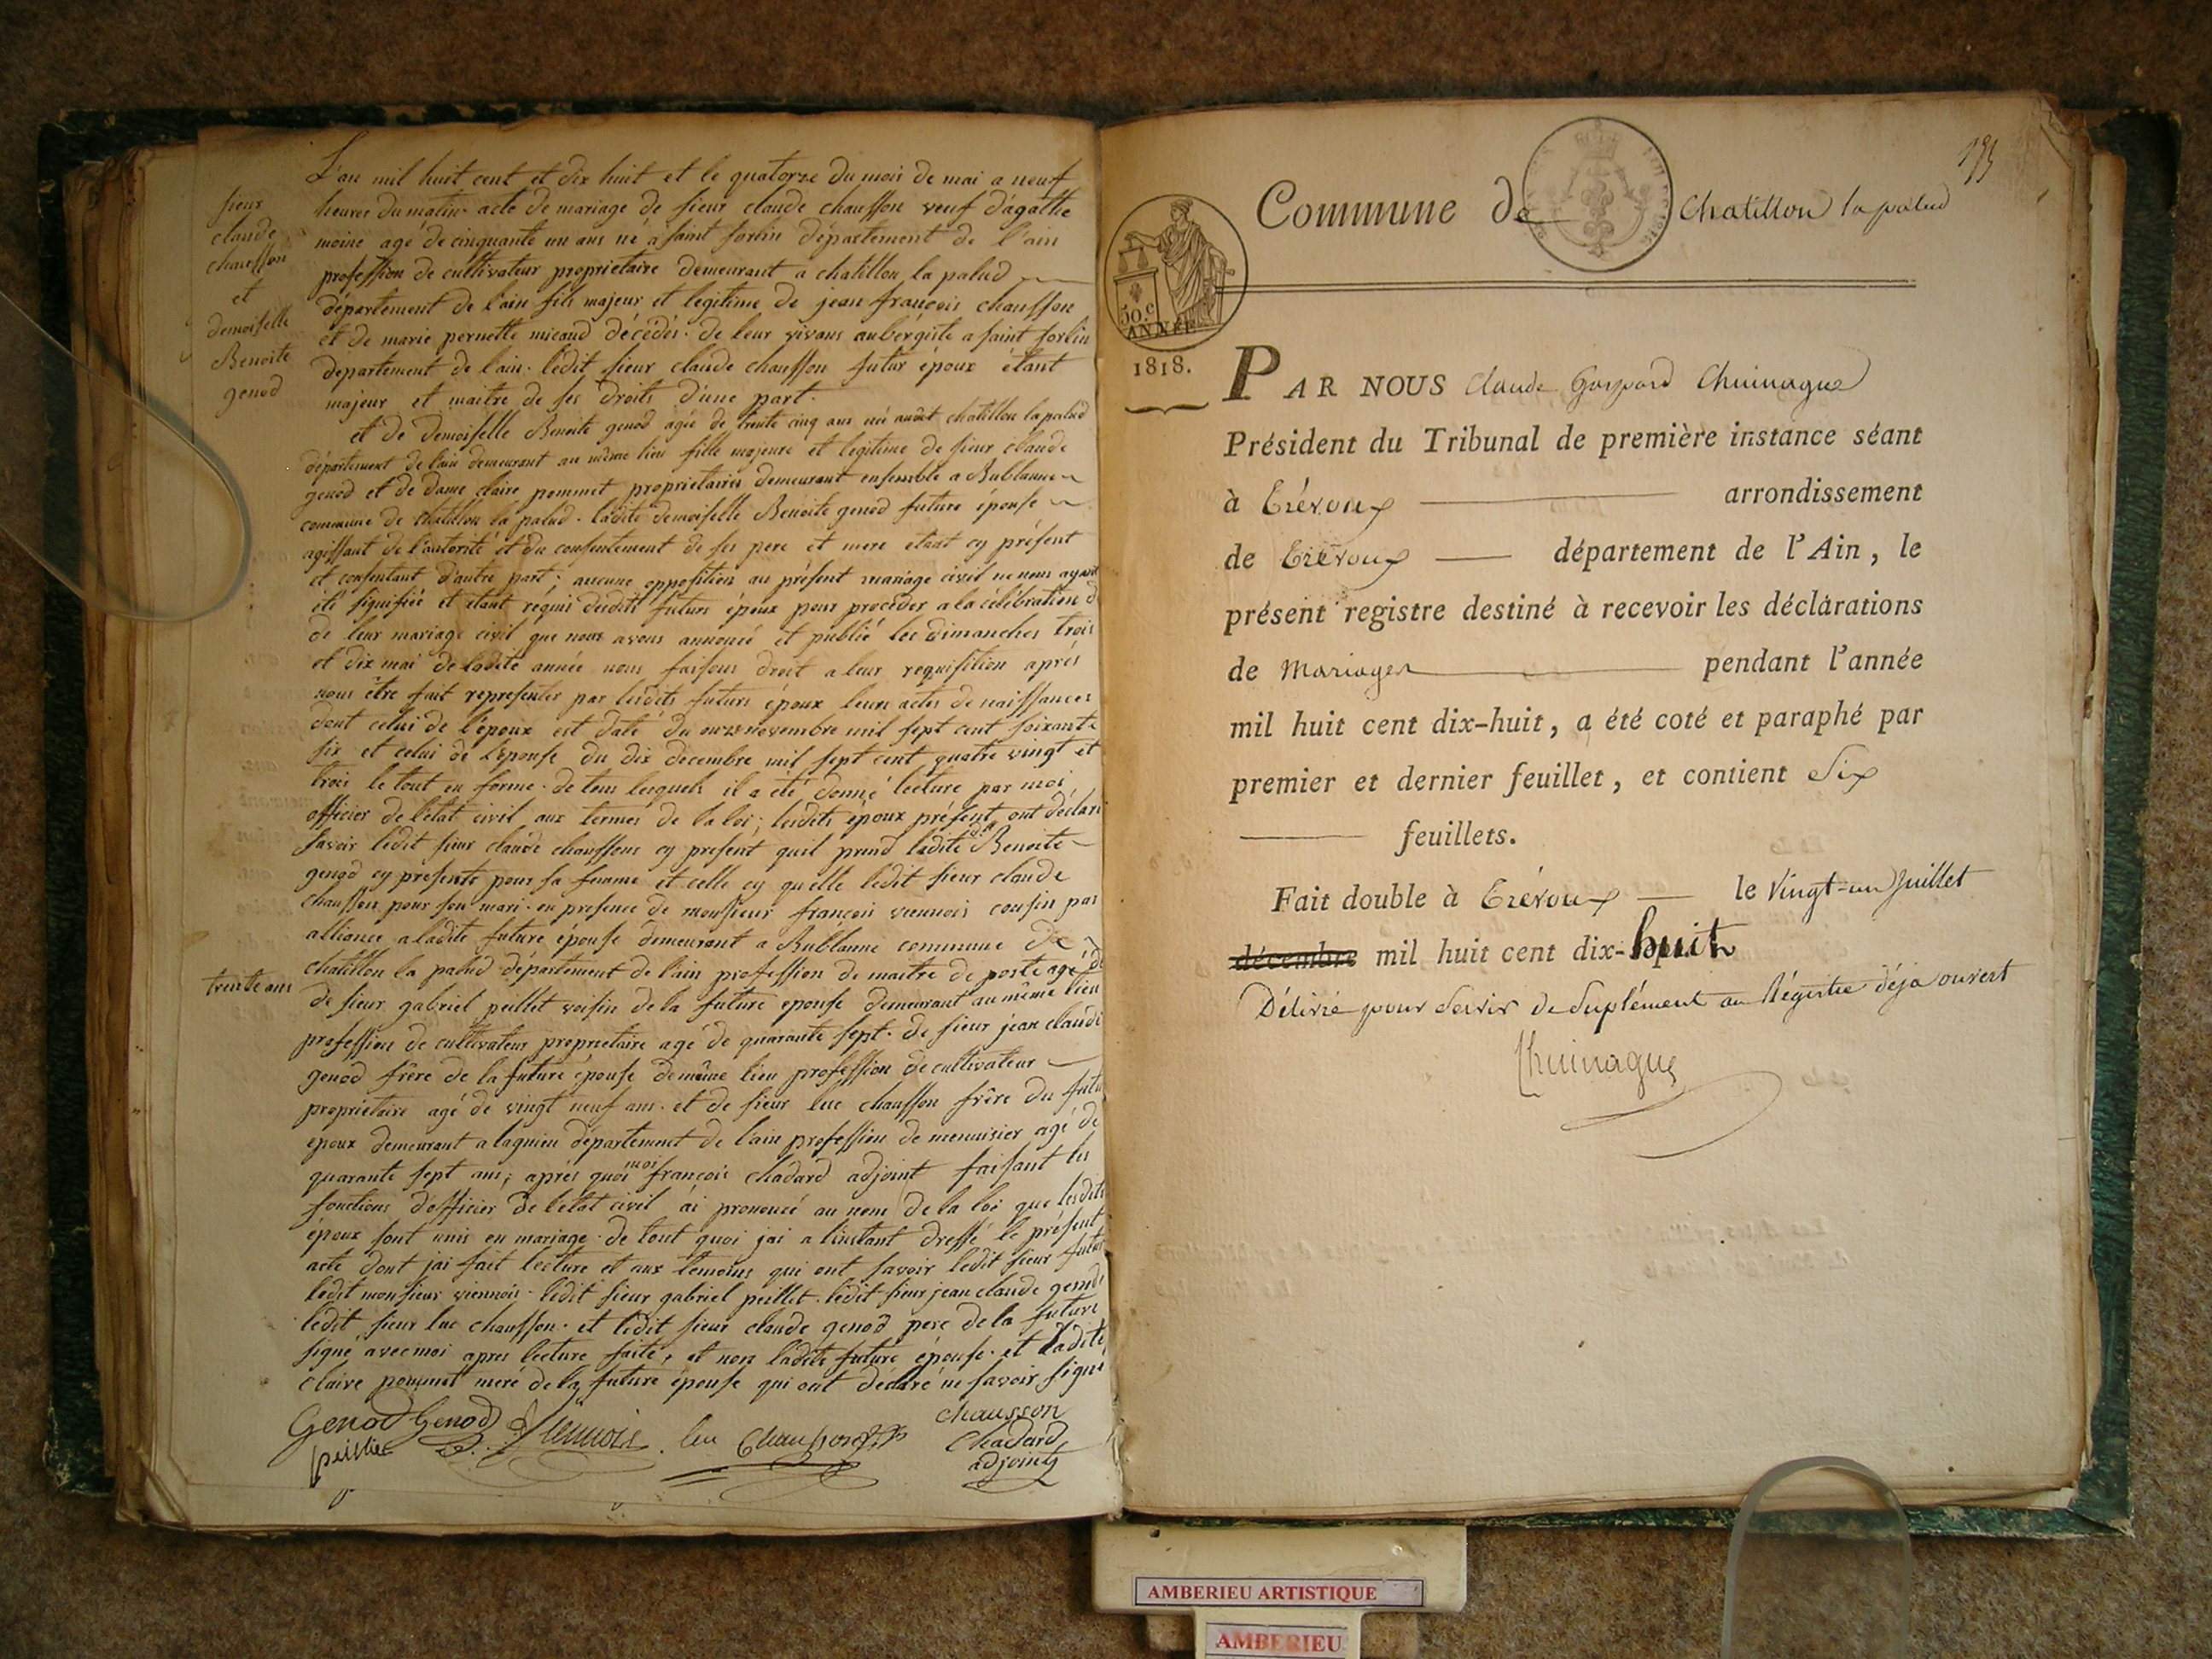 L'an mil huit cent et dix huit et le quatorze du mois de mai a neuf
heures du matin. acte de mariage de sieur claude chausson veuf d'agathe
moine agé de cinquante un ans né a saint sorlin département de l'ain
profession de cultivateur proprietaire demeurant a chatillon la palud
département de l'ain fils majeur et legitime de jean françois chausson
et de marie pernette micaud décédés. de leur vivans aubergiste a saint sorlin
département de l'ain. ledit sieur claude chausson futur époux étant
majeur et maitre de ses droits d'une part.
et de demoiselle Benoite genod agée de trente cinq ans né audit chatillon la palud
département de l'ain demeurant au même lieu fille majeure et legitime de sieur claude
genod et de dame claire pommet proprietaires demeurant ensemble a Bublanne
commune de chatillon la palud. ladite demoiselle Benoite genod future épouse
agissant de l'autorité et du consentement de ses pere et mere etant cy présent
et consentant d'autre part; aucune opposition au présent mariage civil ne nous ayant
été signifiée et etant réquis desdits futurs époux pour proceder a la célébration d
de leur mariage civil que nous avons annoncé et publié les dimanches trois
et dix mai de ladite année nous faisons droit a leur requisition aprés
nous être fait representer par lesdits futurs époux leurs actes de naissances
dont celui de l'époux est daté du onze novembre mil sept cent soixante
six et celui de l'épouse du dix decembre mil sept cent quatre vingt et
trois le tout en forme. de tous lesquels il a été donné lecture par moi
officier de l'état civil aux termes de la loi; lesdits époux présent ont déclaré
savoir ledit sieur claude chaussons cy présent qu'il prend ladite dlle Benoite
genod cy presente pour sa femme et celle cy qu'elle ledit sieur claude
chausson pour son mari. en presence de monsieur françois viennois cousin par
alliance a ladite future épouse demeurant a Bublanne commune de
chatillon la palud département de l'ain profession de maitre de poste agé de
de sieur gabriel peillet voisin de la future epouse demeurant au même lieu
profession de cultivateur proprietaire agé de quarante sept. de sieur jean claude
genod frère de la future épouse de même lieu profession de cultivateur
proprietaire agé de vingt neuf ans. et de sieur luc chausson frère du futu
epoux demeurant a lagnieu département de l'ain profession de menuisier agé de
quarante sept ans; aprés quoi moi françois chadard adjoint faisant les
fonctions d'officier de l'état civil ai prononcé au nom de la loi que lesdits
époux sont unis en mariage. de tout quoi j'ai a l'instant dressé le présent
acte dont j'ai fait lecture et aux temoins qui ont savoir ledit sieur futur
ledit monsieur viennois. ledit sieur gabriel peillet. ledit sieur jean claude genod
ledit sieur luc chausson. et ledit sieur claude genod pere de la future
signé avec moi apres lecture faite, et non ladite future épouse. et ladite
claire pommet mere de la future épouse qui ont déclaré ne savoir signé
Genod Genod Viennois. luc Chausson chausson
peillet Chadard
adjoint
sieur
claude
chausson
et
demoiselle
Benoite
genod
trente ans
195
Commune de Chatillon la palud
50.c
ANNÉE
1818.
PAR NOUS Claude Gaspard Chuinague
Président du Tribunal de première instance séant
à Trévoux arrondissement
de Trévoux département de l'Ain, le
présent registre destiné à recevoir les déclarations
de Mariages pendant l'année
mil huit cent dix-huit, a été coté et paraphé par
premier et dernier feuillet, et contient Six
feuillets.
Fait double à Trévoux le Vingt-un Juillet
décembre mil huit cent dix-huit
Délivré pour servir de Suplément au Régistre déja ouvert
Chuinague
AMBERIEU ARTISTIQUE
AMBERIEU